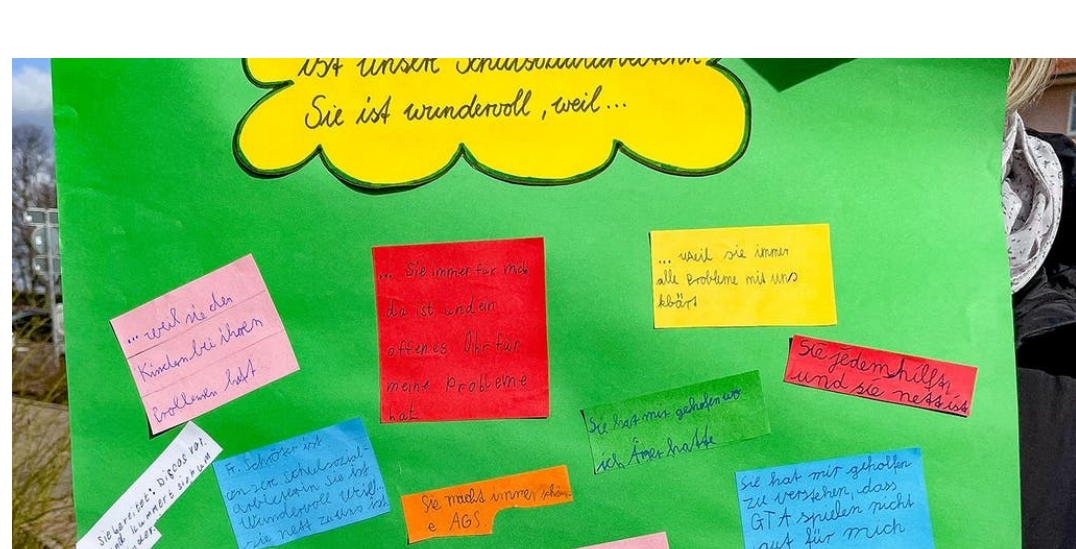 ist unsere Schulsozialarbeiterin
Sie ist wundervoll, weil...
... weil sie den
Kindern bei ihren
Problemen helft
... Sie immer für mich
da ist und ein
offenes Ohr für
meine Probleme
hat
... weil sie immer
alle Probleme mit uns
klärt
Sie jedem hilft,
und sie nett ist
Sie hat mir geholfen wo
ich Ärger hatte
Sie bereitet: Discos vor.
und kümmert sich um
Fr. Schröter ist
unsere Schulsozial-
arbeiterin Sie ist
Wundervoll Weil...
sie nett zu uns ist
Sie macht immer schön-
e AGS.
Sie hat mir geholfen
zu verstehen, dass
GTA spielen nicht
gut für mich